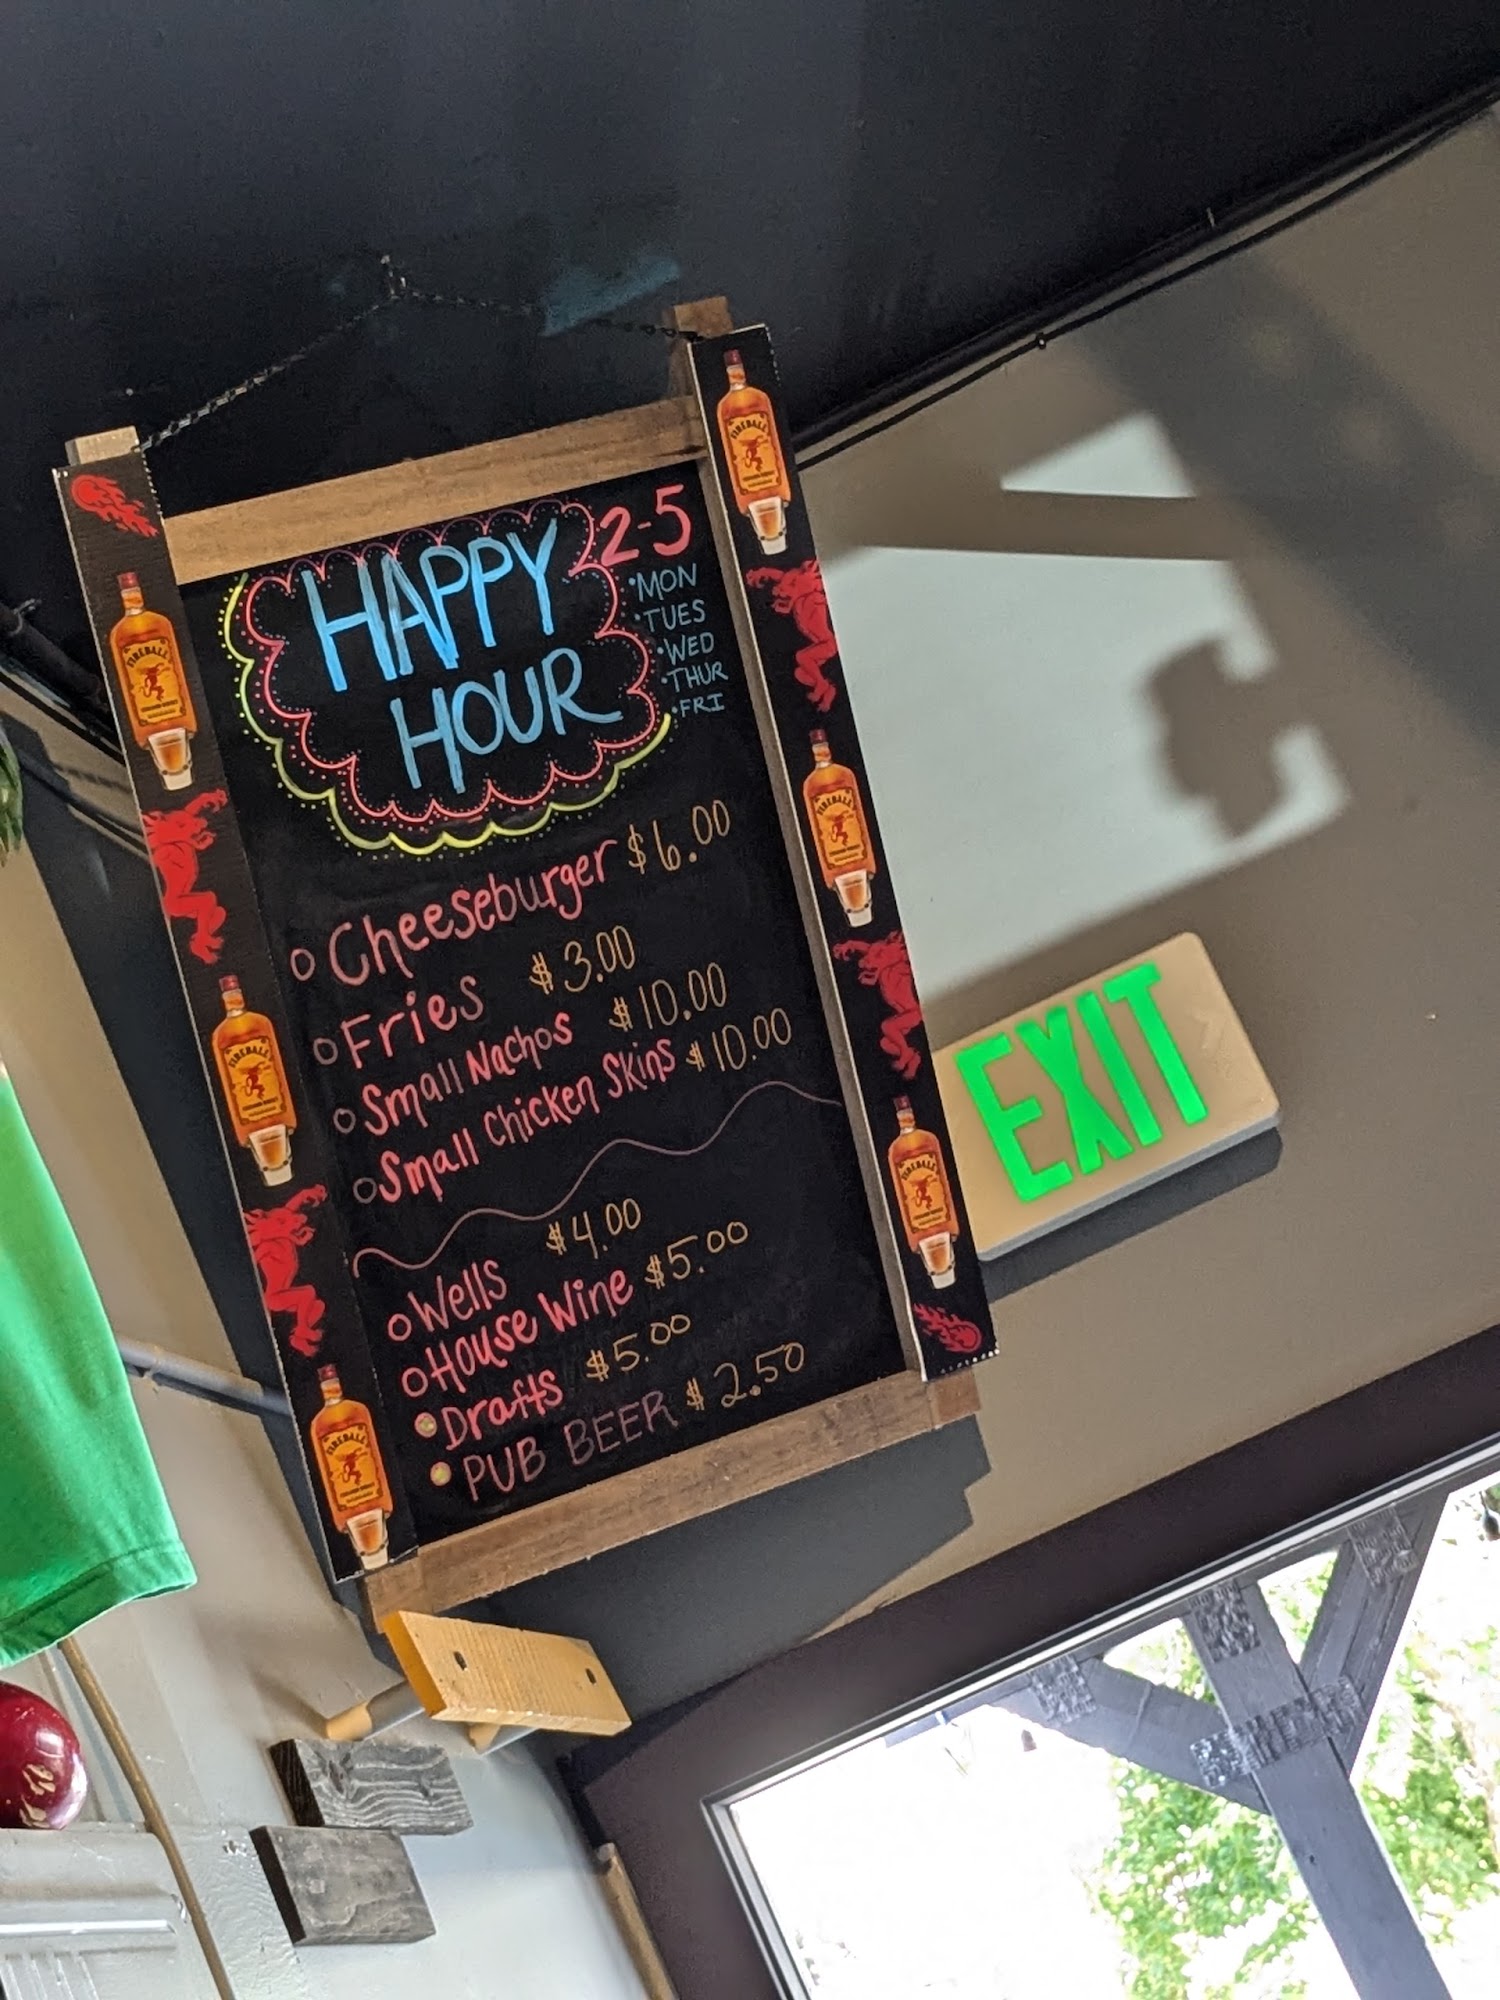 HAPPY
HOUR
2-5
•MON
•TUES
•WED
•THUR
•FRI
o Cheeseburger $6.00
o Fries $3.00
o Small Nachos $10.00
o Small Chicken Skins $10.00
o Wells $4.00
o House Wine $5.00
o Drafts $5.00
o PUB BEER $2.50
EXIT
FIREBALL
FIREBALL
FIREBALL
FIREBALL
FIREBALL
FIREBALL